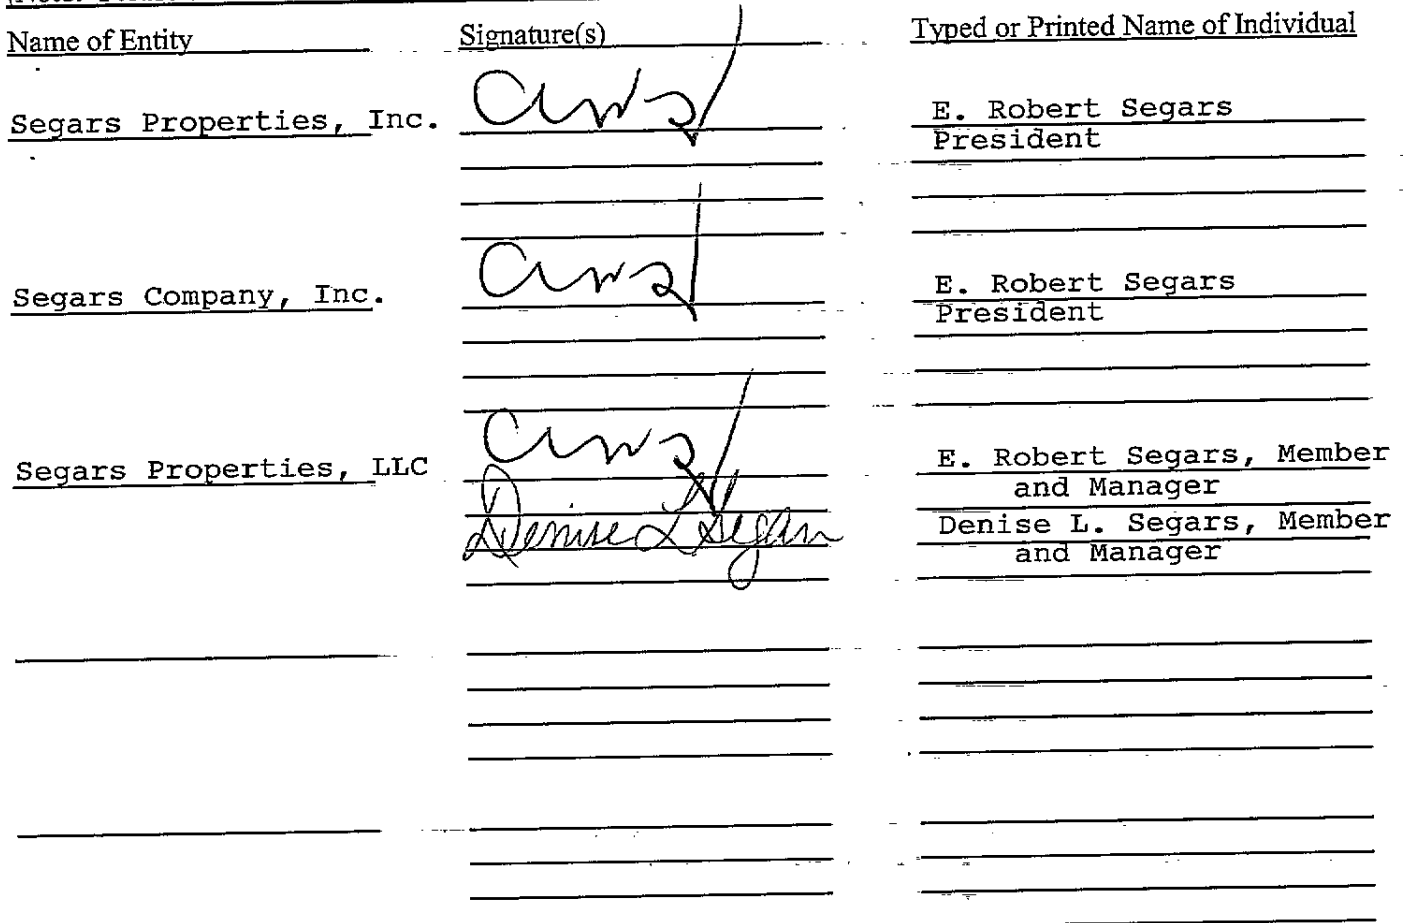 Name of Entity Signature(s) Typed or Printed Name of Individual
Segars Properties, Inc. E. Robert Segars
President
Segars Company, Inc. E. Robert Segars
President
Segars Properties, LLC E. Robert Segars, Member
and Manager
Denise L Segars Denise L. Segars, Member
and Manager